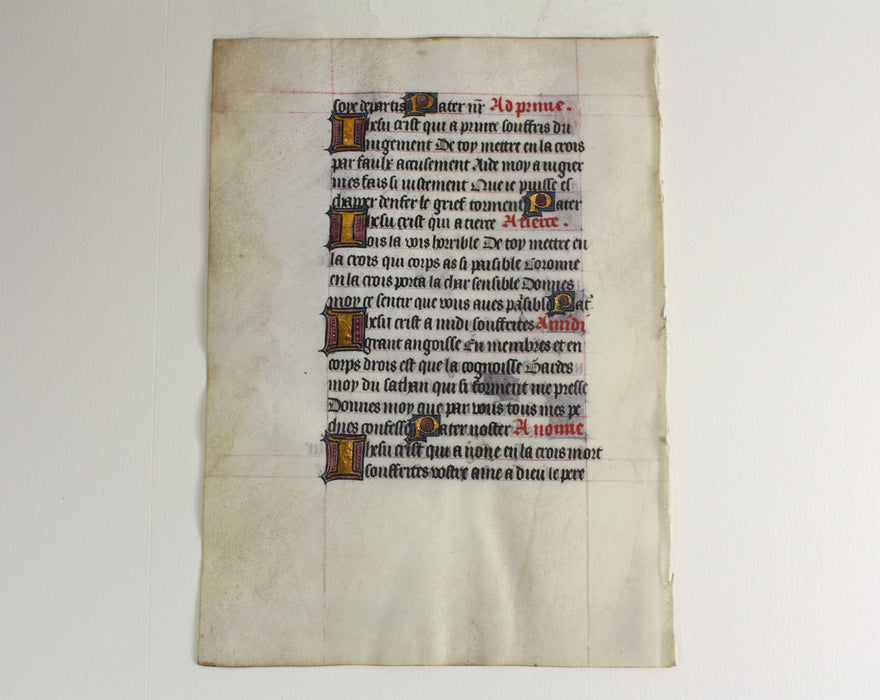 soye departis Pater nr̄ Ad prime.
Ihesu crist qui a prime souffris du
iugement De toy mettre en la crois
par faulx accusement Aide moy a iugier
mes fais si iustement Que ie puisse es
chaper denfer le grief torment Pater
Ihesu crist qui a tierce A tierce.
lois la vois horrible De toy mettre en
la crois qui corps as si paisible Coronne
en la crois porta la char sensible Donnes
moy ce sentir que vous aues paisible Pat'
Ihesu crist a midi souffrites A midi
grant angoisse En membres et en
corps drois est que la cognoisse Gardes
moy du sathan qui si torment me presse
Donnes moy que par vous tous mes pe
chies confesse Pater noster A nonne
Ihesu crist qui a none en la crois mort
souffrites vostre ame a dieu le pere